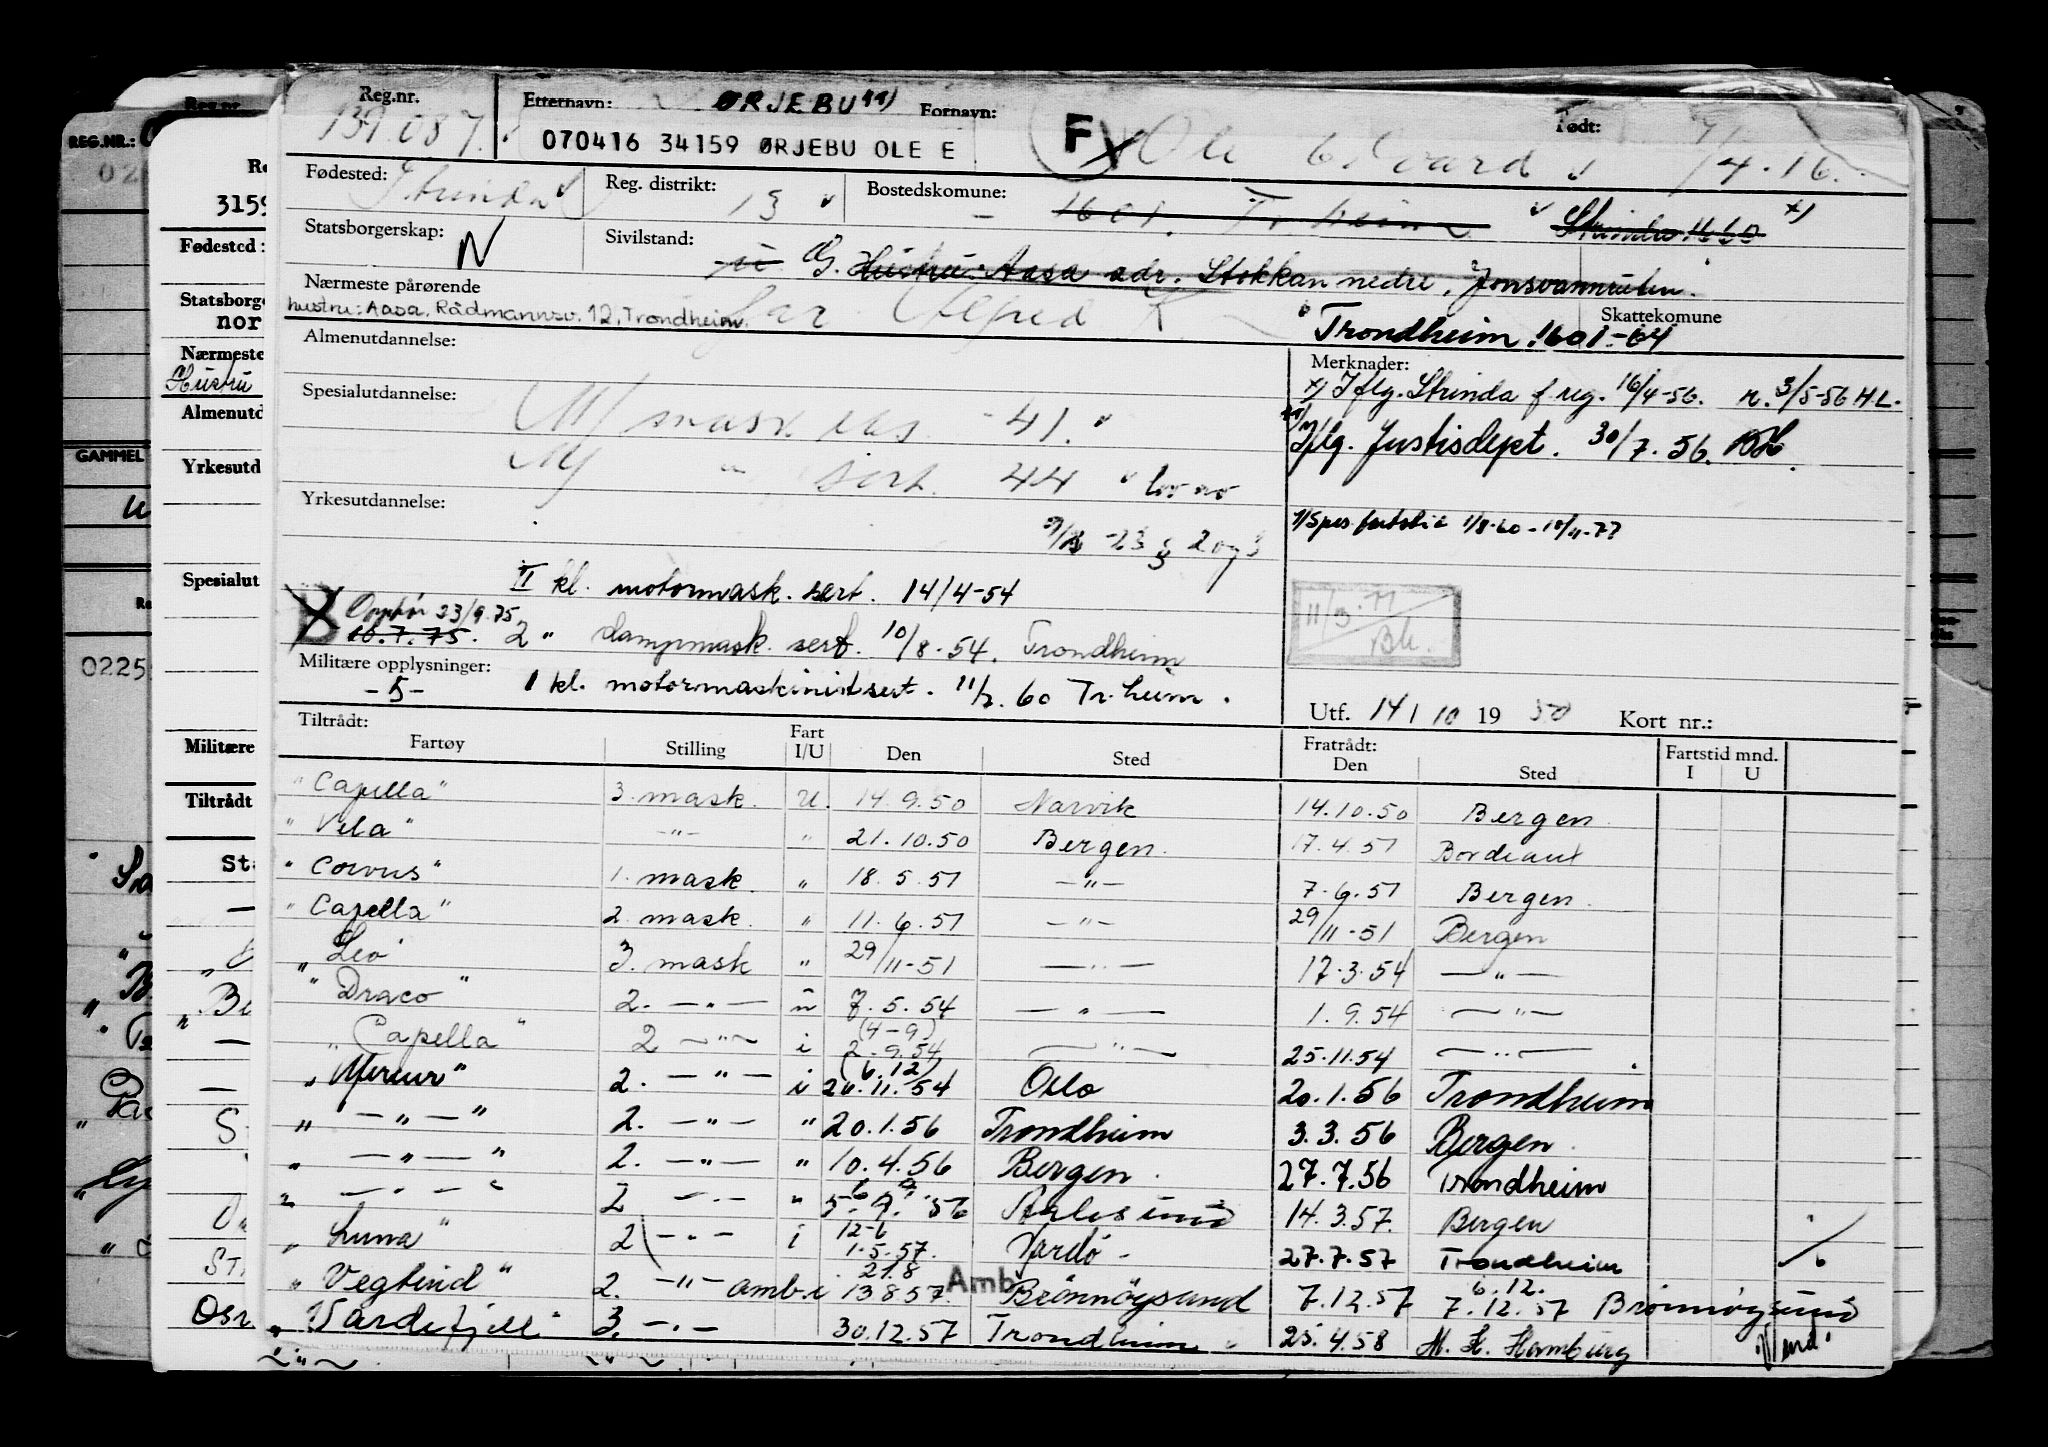 Reg.nr. Etternavn: ØRJEBU Fornavn: Født:
139.087. 070416 34159 ØRJEBU OLE E F Ole Edvard 7/4.16.
Fødested: Strinda Reg. distrikt: 13 Bostedskomune: 1601. Tr.heim Strinda 1660 x)
Statsborgerskap: N Sivilstand: G. Hustru: Aasa adr. Stokkan nedre, Jonsvannruten.
Nærmeste pårørende far Alfred Skattekomune
hustru: Aasa, Rådmannsv. 12, Trondheim. Trondheim 1601-64
Almenutdannelse: Merknader:
x) Iflg. Strinda f.reg. 16/4-56. r. 3/5-56 HL.
Spesialutdannelse: M/ mask eks -41.
Iflg. Justisdept. 30/7.56.
M/ " sert. 44
Yrkesutdannelse:
-23 § 2 og 3
1/8-60 -
II kl. motormask. sert. 14/4-54
Opphør 23/9.75
16.7.75. 2 " dampmask. sert. 10/8-54. Trondheim
11/3.77
Bh.
Militære opplysninger: 1 kl. motormaskinistsert. 11/2.60 Tr.heim.
-5-
Utf. 14/10 1950 Kort nr.:
Tiltrådt: Fartøy Stilling Fart I/U Den Sted Fratrådt: Den Sted Fartstid mnd. I U
"Capella" 3. mask. U. 14.9.50 Narvik 14.10.50 Bergen
"Vela" -"- " 21.10.50 Bergen. 17.4.51 Bordeaux
"Corvus" 1. mask. " 18.5.51 -"- 7.6.51 Bergen.
"Capella" 2. mask. " 11.6.51 -"- 29/11-51 Bergen
"Leo" 3. mask " 29/11-51 -"- 17.3.54 -"-
"Draco" 2. -"- u 7.5.54 -"- 1.9.54 -"-
(4-9)
"Capella" 2 -"- i 2.9.54 -"- 25.11.54 -"-
(6.12)
"Merkur" 2. -"- i 26.11.54 Oslo 20.1.56 Trondheim
" -"- " 2. -"- " 20.1.56 Trondheim 3.3.56 Bergen.
" -"- " 2. -"- " 10.4.56 Bergen. 27.7.56 Trondheim
" -"- " 2 -"- " 5.9.56 Aalesund 14.3.57. Bergen
12-6
"Luna" 2 -"- i 1.5.57. Vardö 27.7.57 Trondheim
21.8 6.12.
"Vegtind" 2. -"- amb. i 13857. Amb. Brönnöysund 7.12.57 7.12.57 Brönnöysund
"Vardefjell" 3. -"- 30.12.57 Trondheim 25.4.58 M.K. Hamburg
Vend.
Reg.nr
REG.NR.:
3159
Fødested:
Statsborge
nor
Nærmeste
Hustru
Almenutd
GAMMEL
Yrkesutd
Spesialut
0225
Militære
Tiltrådt